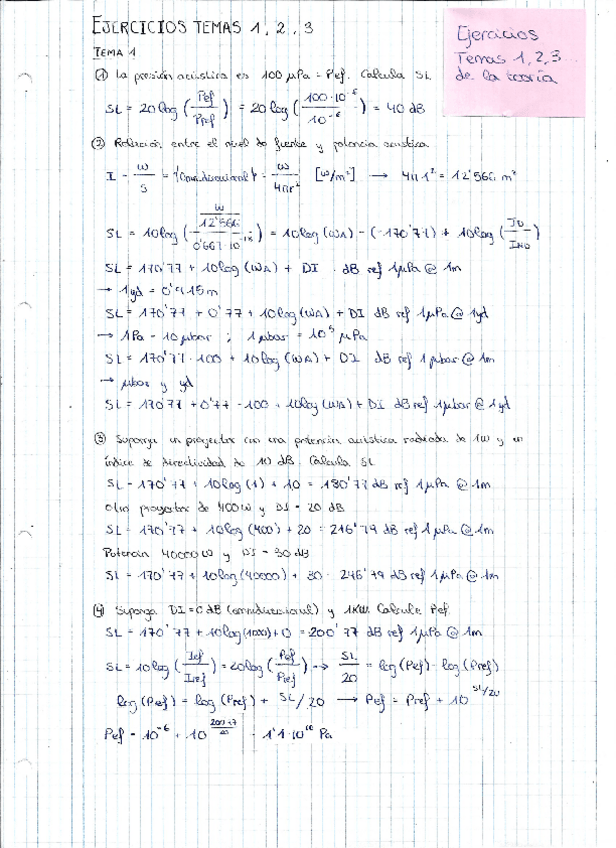 EJERCICIOS TEMAS 1, 2, 3
Ejercicios
Temas 1, 2, 3
de la teoría
TEMA 1
① La presión acústica es 100 μPa = Pef. Calcula SL
SL = 20 log (Pef/Pref) = 20 log (100·10⁻⁶/10⁻⁶) = 40 dB
② Relación entre el nivel de fuente y potencia acústica
I = W/S = {Omnidireccional} = W/4πr² [W/m²] → 4π1² = 12'566 m²
SL = 10 log ( / 0'667·10⁻¹⁸) = 10 log (WA) - (-170'77) + 10 log (ID/IND)
SL = 170'77 + 10 log (WA) + DI dB ref 1μPa @ 1m
→ 1yd = 0'915m
SL = 170'77 + 0'77 + 10 log (WA) + DI dB ref 1μPa @ 1yd
→ 1Pa = 10 μbar ; 1μbar = 10⁵ μPa
SL = 170'77 - 100 + 10 log (WA) + DI dB ref 1μbar @ 1m
→ μbar y yd
SL = 170'77 + 0'77 - 100 + 10 log (WA) + DI dB ref 1μbar @ 1yd
③ Suponga un proyector con una potencia acústica radiada de 1W y un
índice de directividad de 10 dB. Calcula SL
SL = 170'77 + 10 log (1) + 10 = 180'77 dB ref 1μPa @ 1m
Otro proyector de 400W y DI = 20 dB
SL = 170'77 + 10 log (400) + 20 = 216'79 dB ref 1μPa @ 1m
Potencia 40000 W y DI = 30 dB
SL = 170'77 + 10 log (40000) + 30 = 246'79 dB ref 1μPa @ 1m
④ Suponga DI = 0 dB (omnidireccional) y 1KW. Calcule Pef
SL = 170'77 + 10 log (1000) + 0 = 200'77 dB ref 1μPa @ 1m
SL = 10 log (Ief/Iref) = 20 log (Pef/Pref) → SL/20 = log (Pef) - log (Pref)
log (Pef) = log (Pref) + SL/20 → Pef = Pref + 10^SL/20
Pef = 10⁻⁶ + 10 = 1'1·10¹⁰ Pa